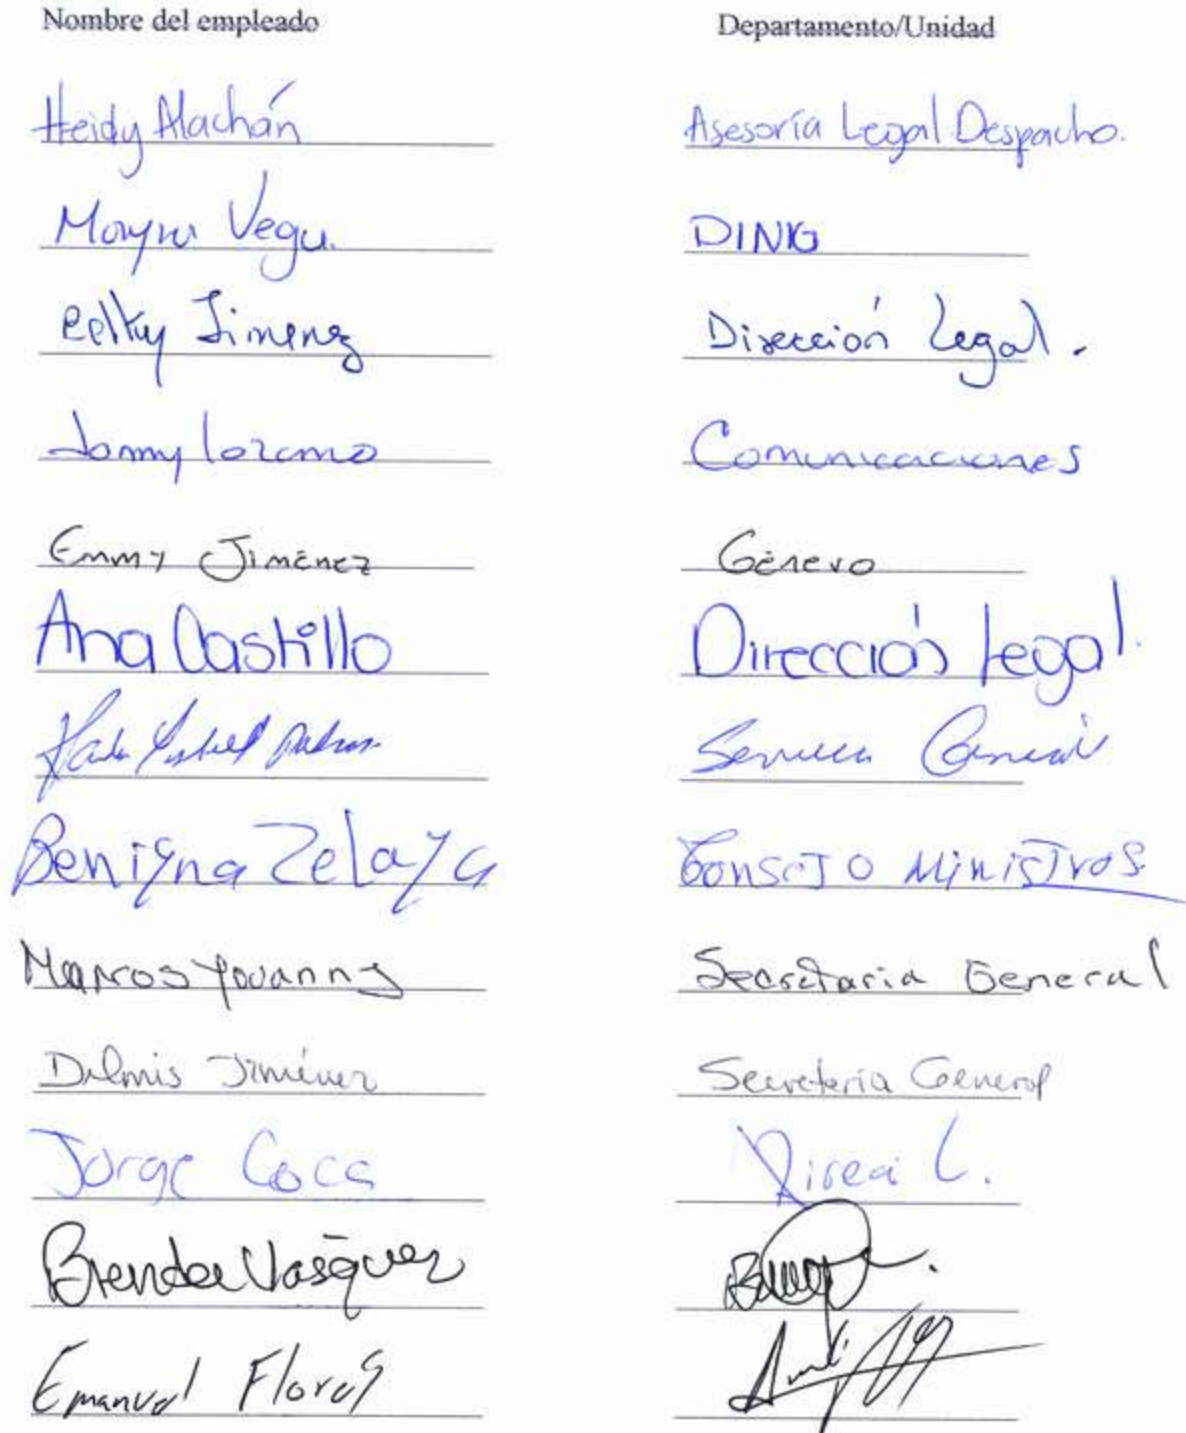 Nombre del empleado Departamento/Unidad
Heidy Alachán Asesoría Legal Despacho.
Mayra Vega. DINIG
Jimenez Dirección Legal.
Lozano Comunicaciones
Emmy Jiménez Género
Ana Castillo Dirección Legal.
Benigna Zelaya Consejo Ministros
Marcos Yovanny Secretaria General
Delmis Jiménez Secretaria General
Jorge Coca
Brenda Vasquez
Emanuel Flores